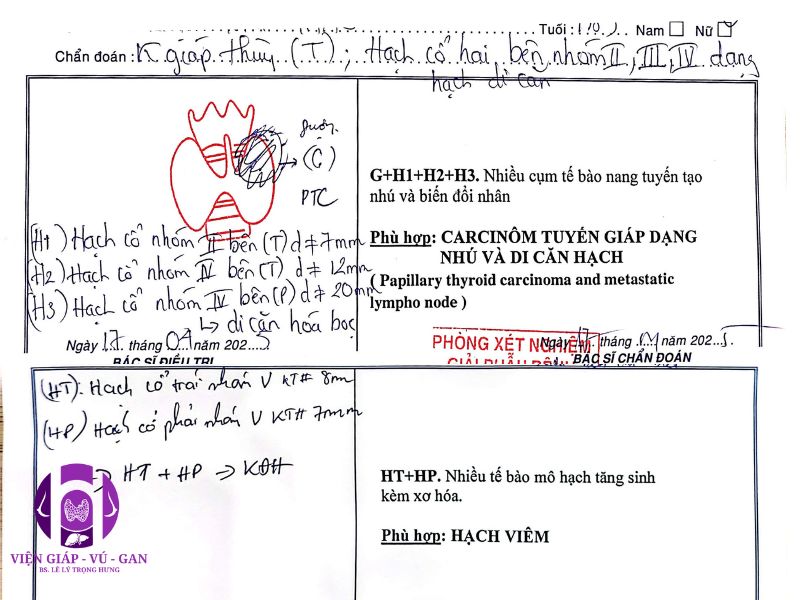 Tuổi: Nam Nữ
Chẩn đoán: K giáp thùy (T); Hạch cổ hai bên nhóm II, III, IV dạng
hạch di căn
(G)
PTC
G+H1+H2+H3. Nhiều cụm tế bào nang tuyến tạo
nhú và biến đổi nhân
Phù hợp: CARCINÔM TUYẾN GIÁP DẠNG
NHÚ VÀ DI CĂN HẠCH
( Papillary thyroid carcinoma and metastatic
lympho node )
(H1) Hạch cổ nhóm II bên (T) d ≠ 7mm
(H2) Hạch cổ nhóm IV bên (T) d ≠ 12mm
(H3) Hạch cổ nhóm IV bên (P) d ≠ 20mm
↳ di căn hóa bọc
Ngày 17 tháng 01 năm 202
BÁC SĨ ĐIỀU TRỊ
PHÒNG XÉT NGHIỆM
GIẢI PHẪU
Ngày 17 tháng 01 năm 202
BÁC SĨ CHẨN ĐOÁN
(HT): Hạch cổ trái nhóm V KT# 8m
(HP) Hạch cổ phải nhóm V KT# 7mm
⇒ HT + HP ⇒
HT+HP. Nhiều tế bào mô hạch tăng sinh
kèm xơ hóa.
Phù hợp: HẠCH VIÊM
VIỆN GIÁP - VÚ - GAN
BS. LÊ LÝ TRỌNG HƯNG